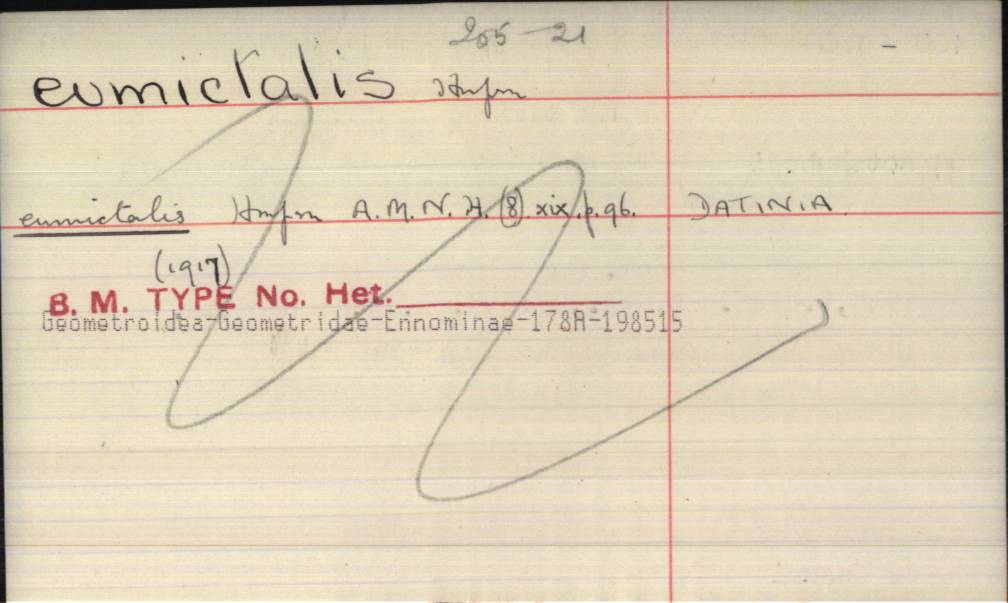 205-21
eumictalis Hmpsn
eumictalis Hmpsn A.M.N.H. (8) xix. p. 96. DATINIA
(1917)
B. M. TYPE No. Het.
Geometroidea-Geometridae-Ennominae-178A-198515